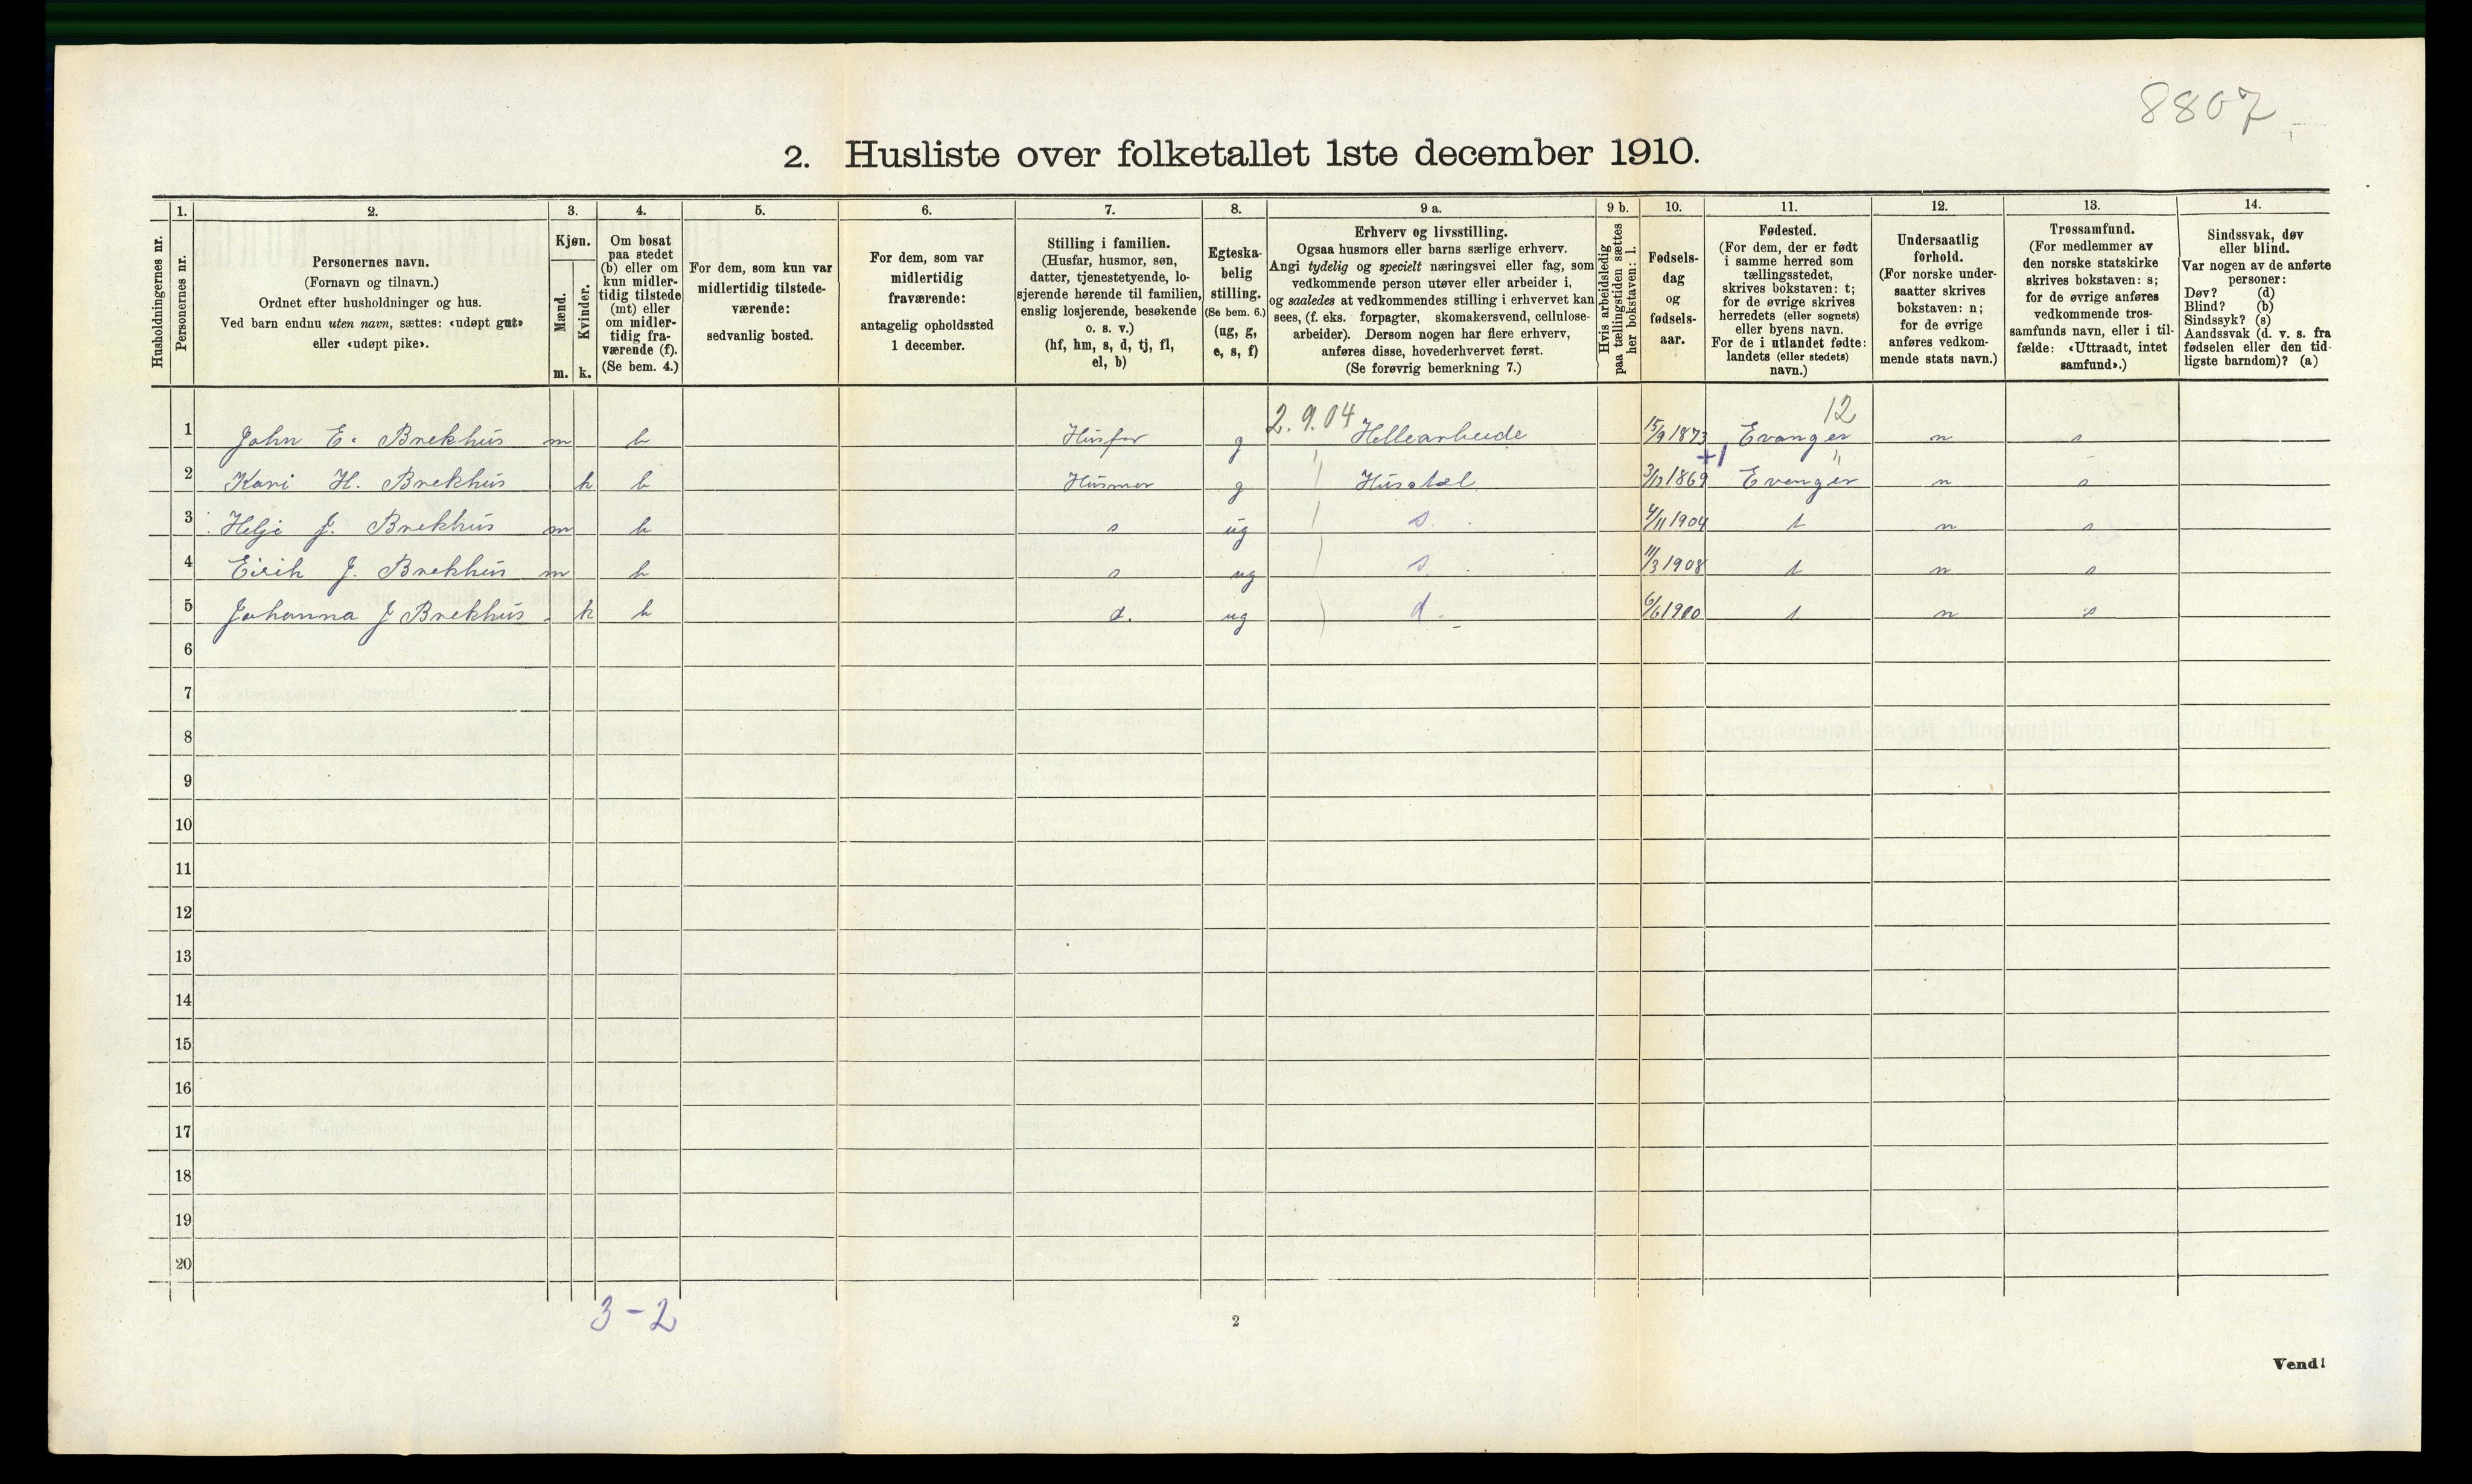 8807
2. Husliste over folketallet 1ste december 1910.
Husholdningernes nr.
1.
Personernes nr.
2.
Personernes navn.
(Fornavn og tilnavn.)
Ordnet efter husholdninger og hus.
Ved barn endnu uten navn, sættes: «udøpt gut»
eller «udøpt pike».
3.
Kjøn.
Mænd.
Kvinder.
m. k.
4.
Om bosat
paa stedet
(b) eller om
kun midler-
tidig tilstede
(mt) eller
om midler-
tidig fra-
værende (f).
(Se bem. 4.)
5.
For dem, som kun var
midlertidig tilstede-
værende:
sedvanlig bosted.
6.
For dem, som var
midlertidig
fraværende:
antagelig opholdssted
1 december.
7.
Stilling i familien.
(Husfar, husmor, søn,
datter, tjenestetyende, lo-
sjerende hørende til familien,
enslig losjerende, besøkende
o. s. v.)
(hf, hm, s, d, tj, fl,
el, b)
8.
Egteska-
belig
stilling.
(Se bem. 6.)
(ug, g,
e, s, f)
9 a.
Erhverv og livsstilling.
Ogsaa husmors eller barns særlige erhverv.
Angi tydelig og specielt næringsvei eller fag, som
vedkommende person utøver eller arbeider i,
og saaledes at vedkommendes stilling i erhvervet kan
sees, (f. eks. forpagter, skomakersvend, cellulose-
arbeider). Dersom nogen har flere erhverv,
anføres disse, hovederhvervet først.
(Se forøvrig bemerkning 7.)
9 b.
Hvis arbeidsledig
paa tællingstiden sættes
her bokstaven: l.
10.
Fødsels-
dag
og
fødsels-
aar.
11.
Fødested.
(For dem, der er født
i samme herred som
tællingsstedet,
skrives bokstaven: t;
for de øvrige skrives
herredets (eller sognets)
eller byens navn.
For de i utlandet fødte:
landets (eller stedets)
navn.)
12.
Undersaatlig
forhold.
(For norske under-
saatter skrives
bokstaven: n;
for de øvrige
anføres vedkom-
mende stats navn.)
13.
Trossamfund.
(For medlemmer av
den norske statskirke
skrives bokstaven: s;
for de øvrige anføres
vedkommende tros-
samfunds navn, eller i til-
fælde: «Uttraadt, intet
samfund».)
14.
Sindssvak, døv
eller blind.
Var nogen av de anførte
personer:
Døv? (d)
Blind? (b)
Sindssyk? (s)
Aandssvak (d. v. s. fra
fødselen eller den tid-
ligste barndom)? (a)
2.9.04 12
1 John E. Brekhus m b Husfar g Hellearbeide 15/9 1873 Evanger n s
+1 "
2 Kari H. Brekhus k b Husmor g Husstel 3/12 1869 Evanger n s
3 Helje J. Brekhus m b s ug s. 4/11 1904 t n s
4 Eirik J. Brekhus m b s ug s. 11/3 1908 t n s
5 Johanna J Brekhus k b d. ug d. 6/6 1900 t n s
6
7
8
9
10
11
12
13
14
15
16
17
18
19
20
3-2
2
Vend!